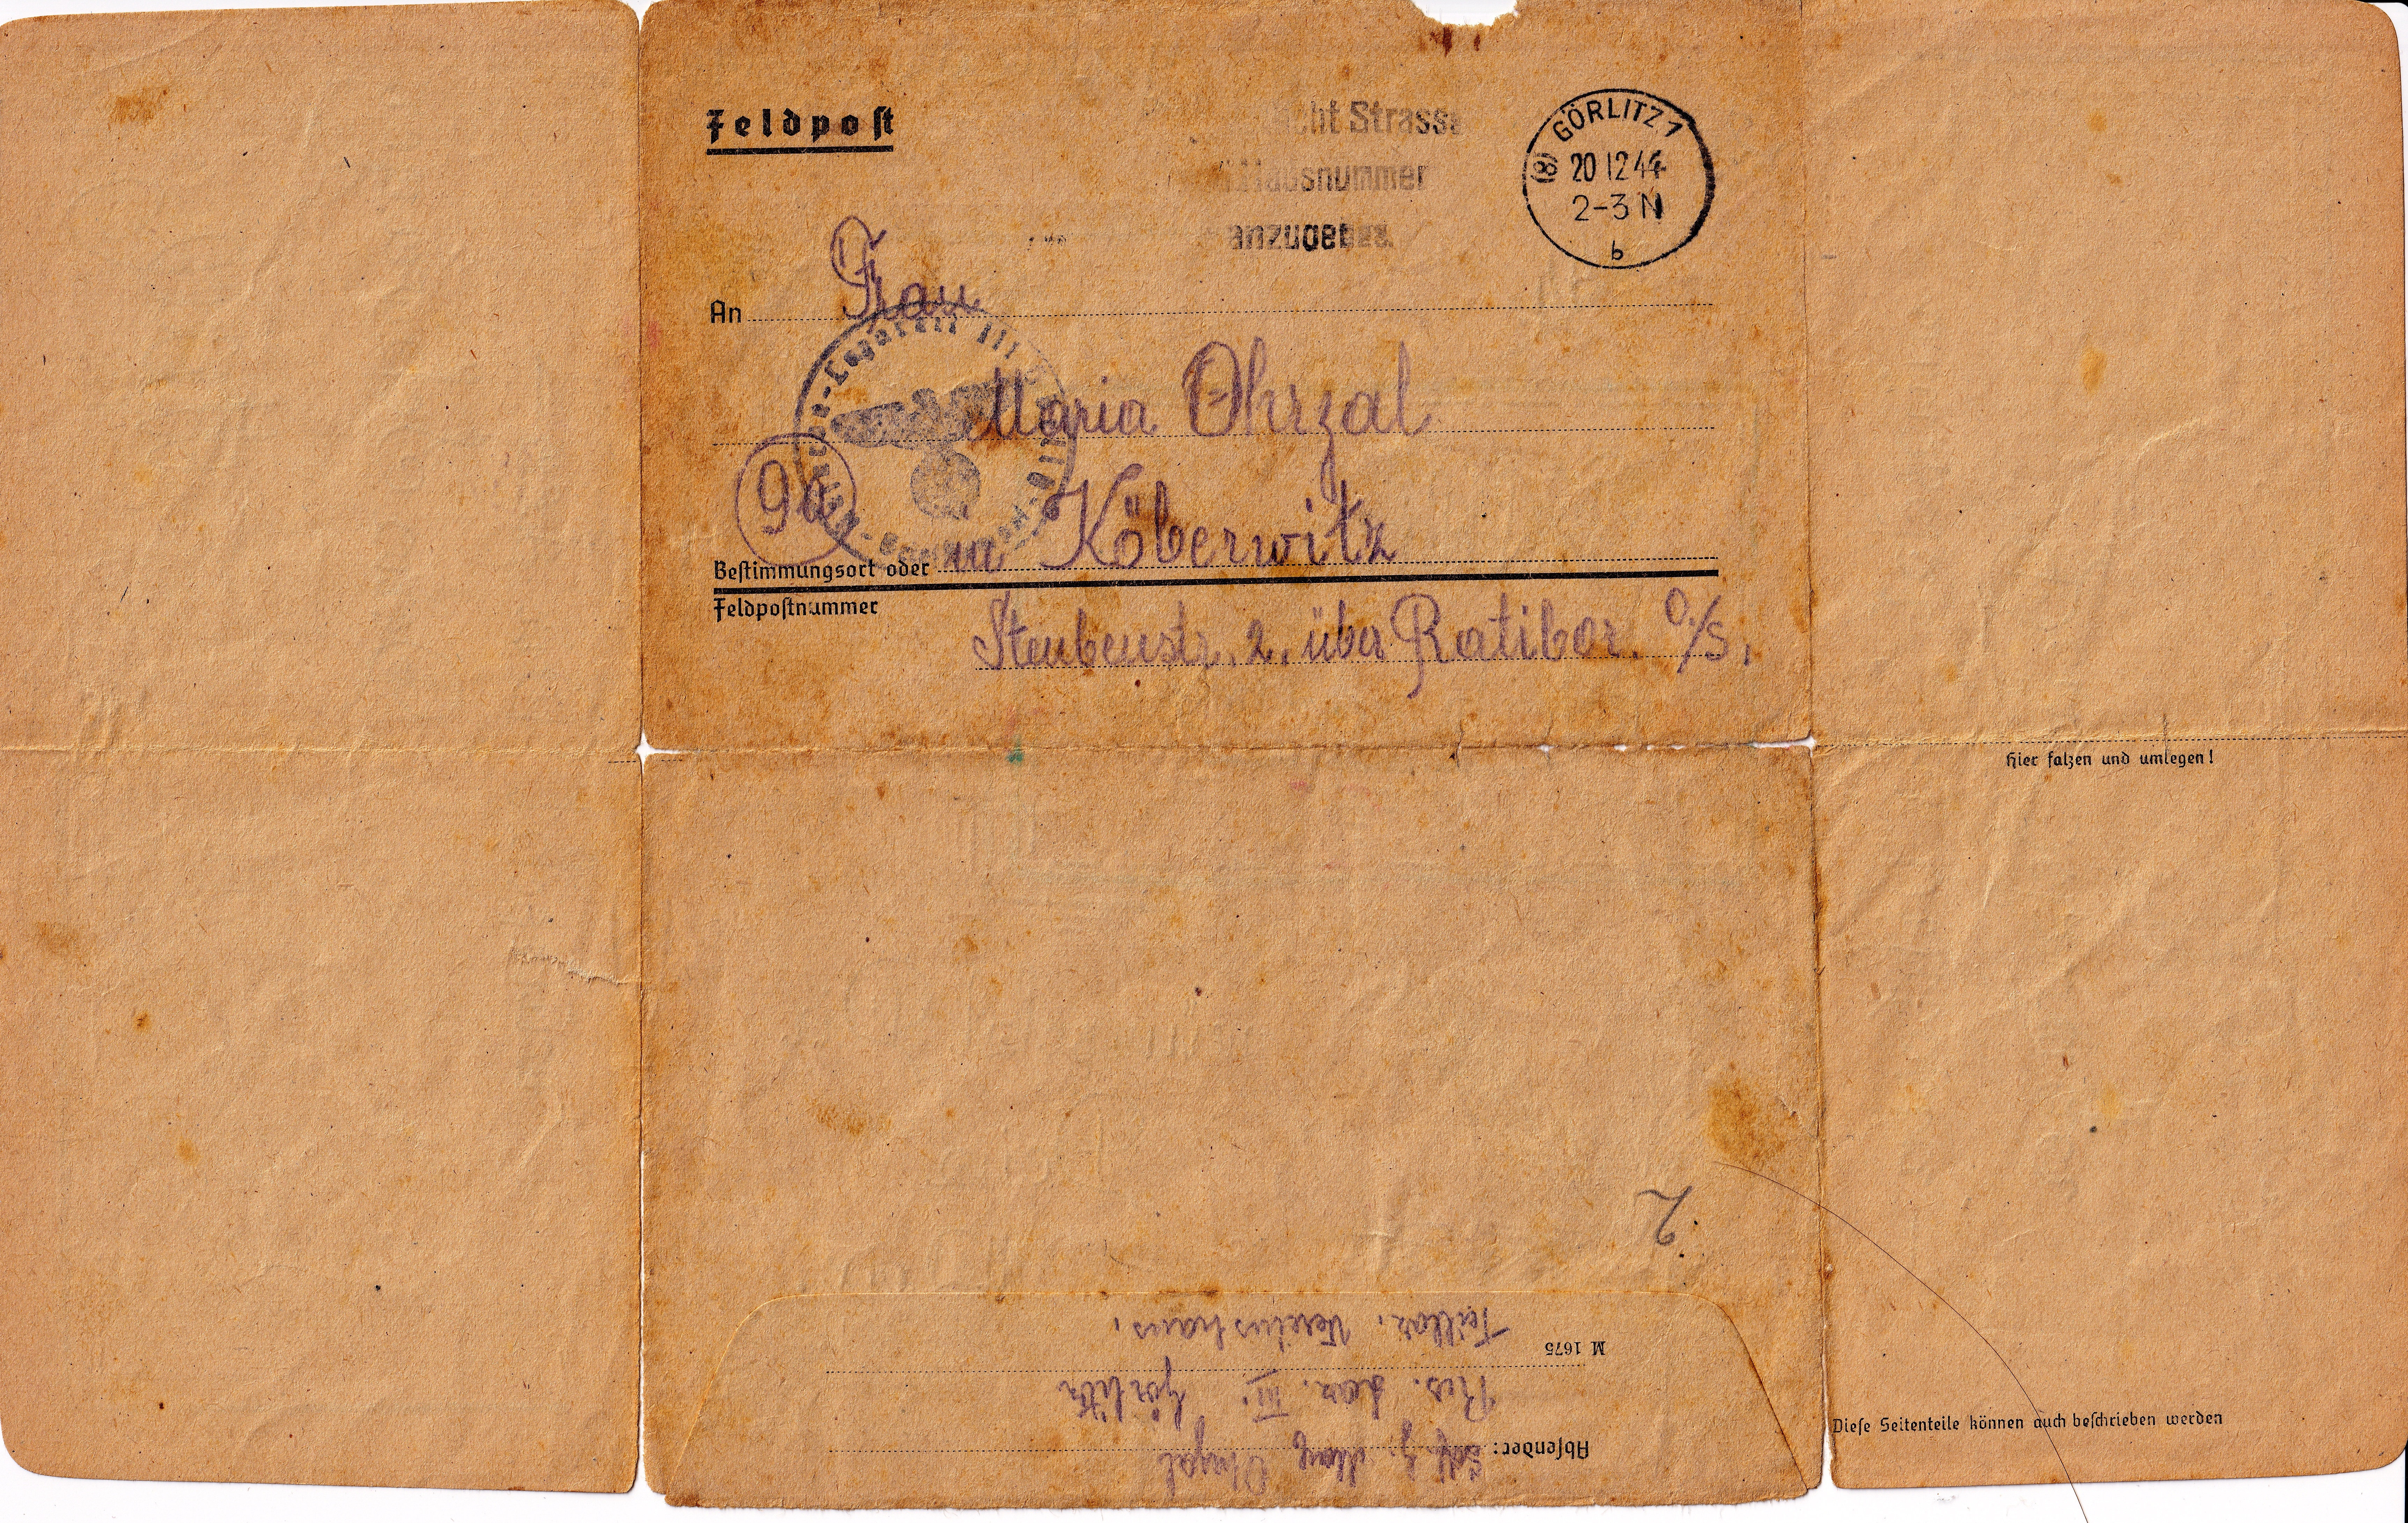 Feldpost
Strasse
Hausnummer
anzugeben.
GÖRLITZ 1
(8) 20 12 44
2-3 N
b
An Frau
Maria Ohrzal
9a
Bestimmungsort oder Köberwitz
Feldpostnummer
Steubenstr. 2. über Ratibor. O./S.
Hier falzen und umlegen!
2
Diese Seitenteile können auch beschrieben werden
Absender: Ohrzal
Res. Laz. III. Görlitz
M 1675
Teillaz. Vereinshaus.